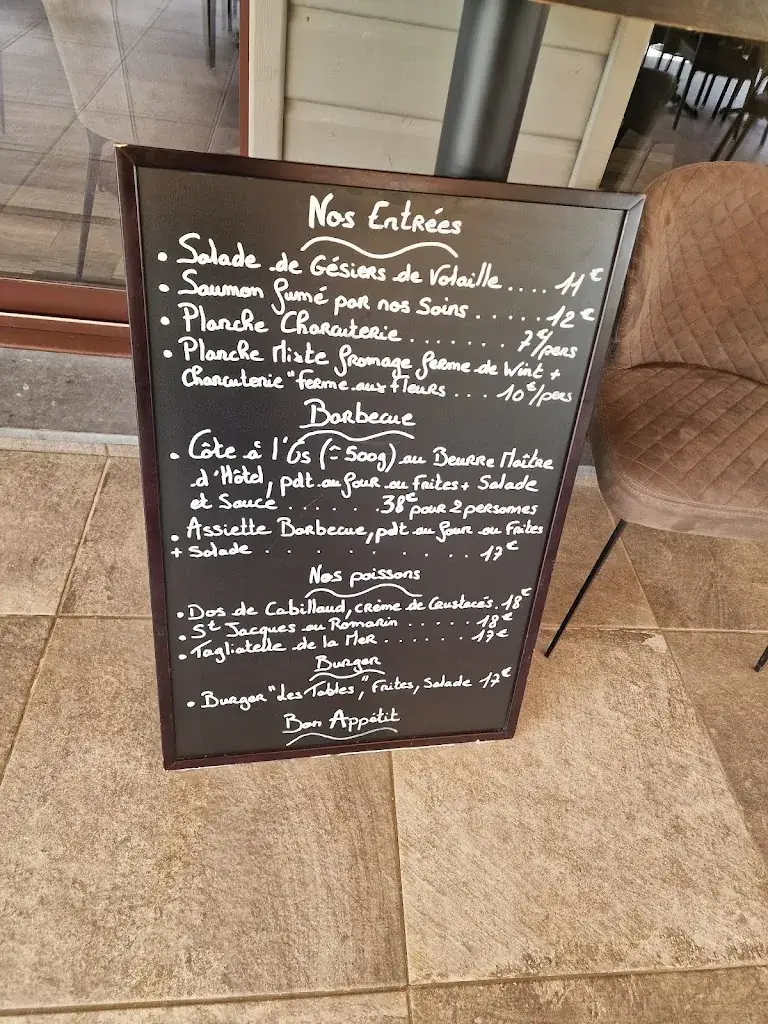 Nos Entrées
• Salade de Gésiers de Volaille .... 11€
• Saumon fumé par nos Soins ..... 12€
• Planche Charcuterie ....... 7€/pers
• Planche Mixte fromage ferme de Wint +
Charcuterie "ferme aux fleurs ... 10€/pers
Barbecue
• Côte à l'Os (≃500g) au Beurre Maître
d'Hôtel, pdt au four ou Frites + Salade
et Sauce ...... 38€ pour 2 personnes
• Assiette Barbecue, pdt au four ou Frites
+ Salade . . . . . . . . 17€
Nos poissons
• Dos de Cabillaud, crème de Crustacés . 18€
• St Jacques au Romarin ...... 18€
• Tagliatelle de la Mer ...... 17€
Burger
• Burger "Les Tables", Frites, Salade 17€
Bon Appétit